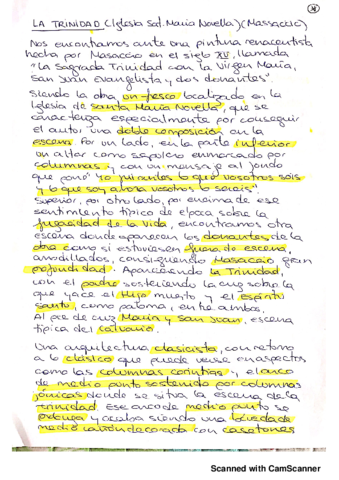 LA TRINIDAD (Iglesia Sta. Maria Novella) (Massaccio)
Nos encontramos ante una pintura renacentista
hecha por Masaccio en el siglo XV, llamada
"La Sagrada Trinidad con la Virgen Maria,
San Juan Evangelista y dos donantes".
Siendo la obra un fresco localizado en la
Iglesia de Santa Maria Novella, que se
caracteriza especialmente por conseguir
el autor una doble composición en la
escena. Por un lado, en la parte inferior
un altar como sepulcro enmarcado por
columnas, con un mensaje al fondo
que pone "Yo fui antes lo que vosotros sois
y lo que soy ahora vosotros lo sereis".
Superior, por otro lado, por encima de ese
sentimiento típico de época sobre la
fugacidad de la vida, encontramos otra
escena donde aparecen los donantes de la
obra como si estuviesen fuera de escena,
arrodillados, consiguiendo Masaccio gran
profundidad. Apareciendo la Trinidad,
con el padre sosteniendo la cruz sobre la
que yace el Hijo muerto y el Espíritu
santo, como paloma, entre ambos.
Al pie de cruz Maria y San Juan, escena
típica del calvario.
Una arquitectura clasicista, con retorno
a lo clásico que puede verse en aspectos
como las columnas corintias y el arco
de medio punto sostenido por columnas
jónicas donde se situa la escena de la
trinidad. Ese arco de medio punto se
prolonga y acaba siendo una bóveda de
medio cañón decorada con casetones
Scanned with CamScanner